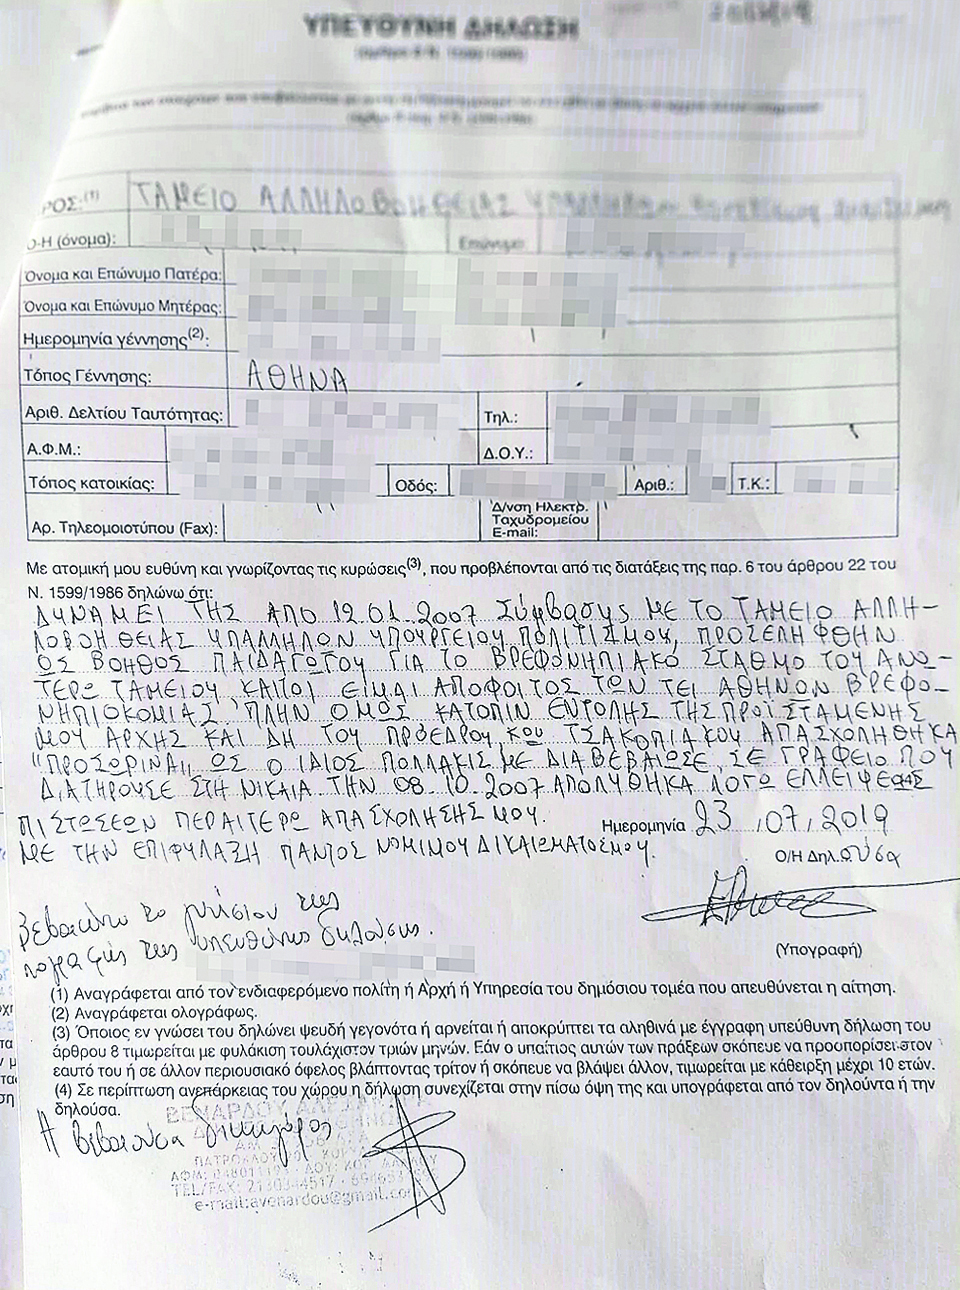 ΥΠΕΥΘΥΝΗ ΔΗΛΩΣΗ
ΡΟΣ:(1) ΤΑΜΕΙΟ ΑΛΛΗΛΟΒΟΗΘΕΙΑΣ ΥΠΑΛΛΗΛΩΝ
Ο-Η (όνομα): Επώνυμο
Όνομα και Επώνυμο Πατέρα:
Όνομα και Επώνυμο Μητέρας:
Ημερομηνία γέννησης(2):
Τόπος Γέννησης: ΑΘΗΝΑ
Αριθ. Δελτίου Ταυτότητας: Τηλ.:
Α.Φ.Μ.: Δ.Ο.Υ.:
Τόπος κατοικίας: Οδός: Αριθ.: Τ.Κ.:
Αρ. Τηλεομοιοτύπου (Fax): Δ/νση Ηλεκτρ.
Ταχυδρομείου
E-mail:
Με ατομική μου ευθύνη και γνωρίζοντας τις κυρώσεις(3), που προβλέπονται από τις διατάξεις της παρ. 6 του άρθρου 22 του
Ν. 1599/1986 δηλώνω ότι:
ΔΥΝΑΜΕΙ ΤΗΣ ΑΠΟ 12.01.2007 Σύμβασης ΜΕ ΤΟ ΤΑΜΕΙΟ ΑΛΛΗ-
ΛΟΒΟΗΘΕΙΑΣ ΥΠΑΛΛΗΛΩΝ ΥΠΟΥΡΓΕΙΟΥ ΠΟΛΙΤΙΣΜΟΥ, ΠΡΟΣΕΛΗΦΘΗΝ
ΩΣ ΒΟΗΘΟΣ ΠΑΙΔΑΓΩΓΟΥ ΓΙΑ ΤΟ ΒΡΕΦΟΝΗΠΙΑΚΟ ΣΤΑΘΜΟ ΤΟΥ ΑΝΩ-
ΤΕΡΩ ΤΑΜΕΙΟΥ, ΚΑΙΤΟΙ ΕΙΜΑΙ ΑΠΟΦΟΙΤΟΣ ΤΩΝ ΤΕΙ ΑΘΗΝΩΝ ΒΡΕΦΟ-
ΝΗΠΙΟΚΟΜΙΑΣ ΠΛΗΝ ΟΜΩΣ ΚΑΤΟΠΙΝ ΕΝΤΟΛΗΣ ΤΗΣ ΠΡΟΪΣΤΑΜΕΝΗΣ
ΜΟΥ ΑΡΧΗΣ ΚΑΙ ΔΗ ΤΟΥ ΠΡΟΕΔΡΟΥ, κου ΤΣΑΚΟΠΙΑΚΟΥ ΑΠΑΣΧΟΛΗΘΗΚΑ
"ΠΡΟΣΩΡΙΝΑ", ΩΣ Ο ΙΔΙΟΣ ΠΟΛΛΑΚΙΣ ΜΕ ΔΙΑΒΕΒΑΙΩΣΕ, ΣΕ ΓΡΑΦΕΙΟ ΠΟΥ
ΔΙΑΤΗΡΟΥΣΕ ΣΤΗ ΝΙΚΑΙΑ. ΤΗΝ 08.10.2007 ΑΠΟΛΥΘΗΚΑ ΛΟΓΩ ΕΛΛΕΙΨΕΩΣ
ΠΙΣΤΩΣΕΩΝ ΠΕΡΑΙΤΕΡΩ ΑΠΑΣΧΟΛΗΣΗΣ ΜΟΥ.
Ημερομηνία 23.07.2019
ΜΕ ΤΗΝ ΕΠΙΦΥΛΑΞΗ ΠΑΝΤΟΣ ΝΟΜΙΜΟΥ ΔΙΚΑΙΩΜΑΤΟΣ ΜΟΥ.
Ο/Η Δηλ.ούσα
Βεβαιώνω το γνήσιον της
υπογραφής της υπευθύνης δηλώσεως.
(Υπογραφή)
(1) Αναγράφεται από τον ενδιαφερόμενο πολίτη ή Αρχή ή Υπηρεσία του δημόσιου τομέα που απευθύνεται η αίτηση.
(2) Αναγράφεται ολογράφως.
(3) Όποιος εν γνώσει του δηλώνει ψευδή γεγονότα ή αρνείται ή αποκρύπτει τα αληθινά με έγγραφη υπεύθυνη δήλωση του
άρθρου 8 τιμωρείται με φυλάκιση τουλάχιστον τριών μηνών. Εάν ο υπαίτιος αυτών των πράξεων σκόπευε να προσπορίσει στον
εαυτό του ή σε άλλον περιουσιακό όφελος βλάπτοντας τρίτον ή σκόπευε να βλάψει άλλον, τιμωρείται με κάθειρξη μέχρι 10 ετών.
(4) Σε περίπτωση ανεπάρκειας του χώρου η δήλωση συνεχίζεται στην πίσω όψη της και υπογράφεται από τον δηλούντα ή την
δηλούσα.
Η βεβαιούσα δικηγόρος
e-mail:avenardou@gmail.com